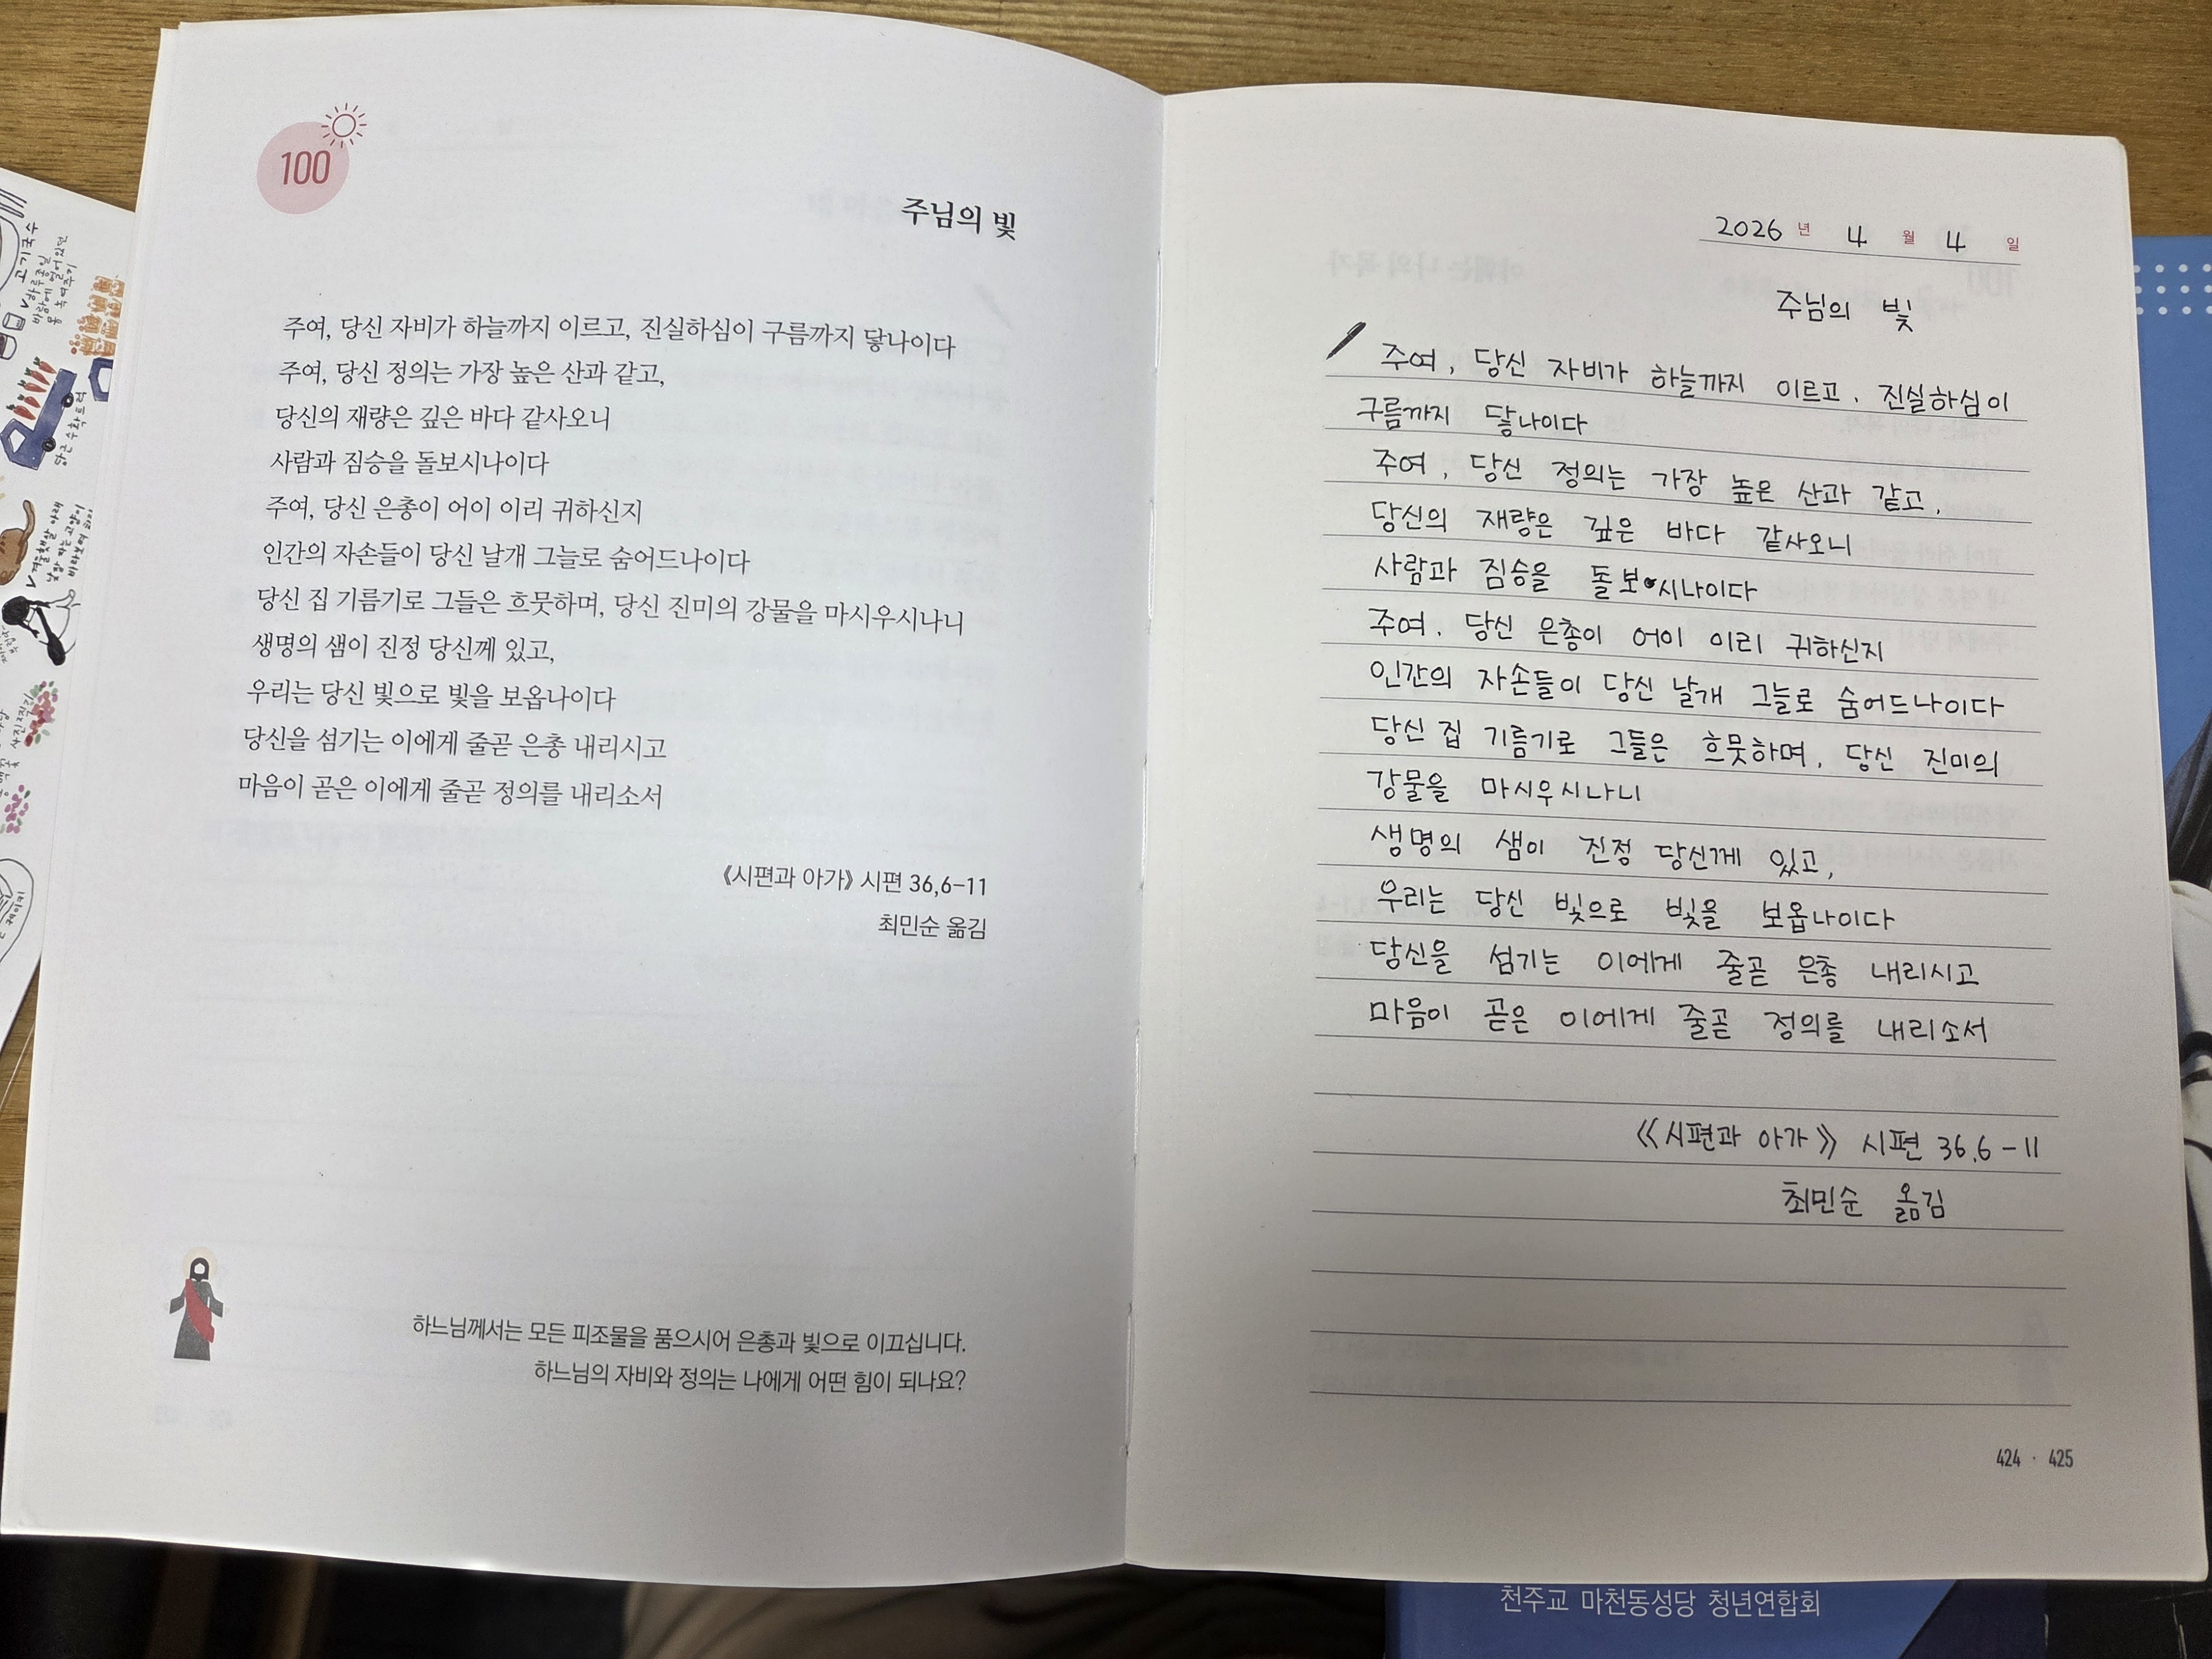 100
주님의 빛
주여, 당신 자비가 하늘까지 이르고, 진실하심이 구름까지 닿나이다
주여, 당신 정의는 가장 높은 산과 같고,
당신의 재량은 깊은 바다 같사오니
사람과 짐승을 돌보시나이다
주여, 당신 은총이 어이 이리 귀하신지
인간의 자손들이 당신 날개 그늘로 숨어드나이다
당신 집 기름기로 그들은 흐뭇하며, 당신 진미의 강물을 마시우시나니
생명의 샘이 진정 당신께 있고,
우리는 당신 빛으로 빛을 보옵나이다
당신을 섬기는 이에게 줄곧 은총 내리시고
마음이 곧은 이에게 줄곧 정의를 내리소서
《시편과 아가》 시편 36,6-11
최민순 옮김
하느님께서는 모든 피조물을 품으시어 은총과 빛으로 이끄십니다.
하느님의 자비와 정의는 나에게 어떤 힘이 되나요?
2026 년 4 월 4 일
주님의 빛
주여, 당신 자비가 하늘까지 이르고, 진실하심이
구름까지 닿나이다
주여, 당신 정의는 가장 높은 산과 같고,
당신의 재량은 깊은 바다 같사오니
사람과 짐승을 돌보시나이다
주여, 당신 은총이 어이 이리 귀하신지
인간의 자손들이 당신 날개 그늘로 숨어드나이다
당신 집 기름기로 그들은 흐뭇하며, 당신 진미의
강물을 마시우시나니
생명의 샘이 진정 당신께 있고,
우리는 당신 빛으로 빛을 보옵나이다
당신을 섬기는 이에게 줄곧 은총 내리시고
마음이 곧은 이에게 줄곧 정의를 내리소서
《시편과 아가》 시편 36,6-11
최민순 옮김
424 · 425
천주교 마천동성당 청년연합회
고기국수
하루종일
바람에 얼어있던
몸 녹여주기
당근 수확 트럭
겨울햇살 아래
낮잠 자는 고양이
바라보며 힐링
사진찍기